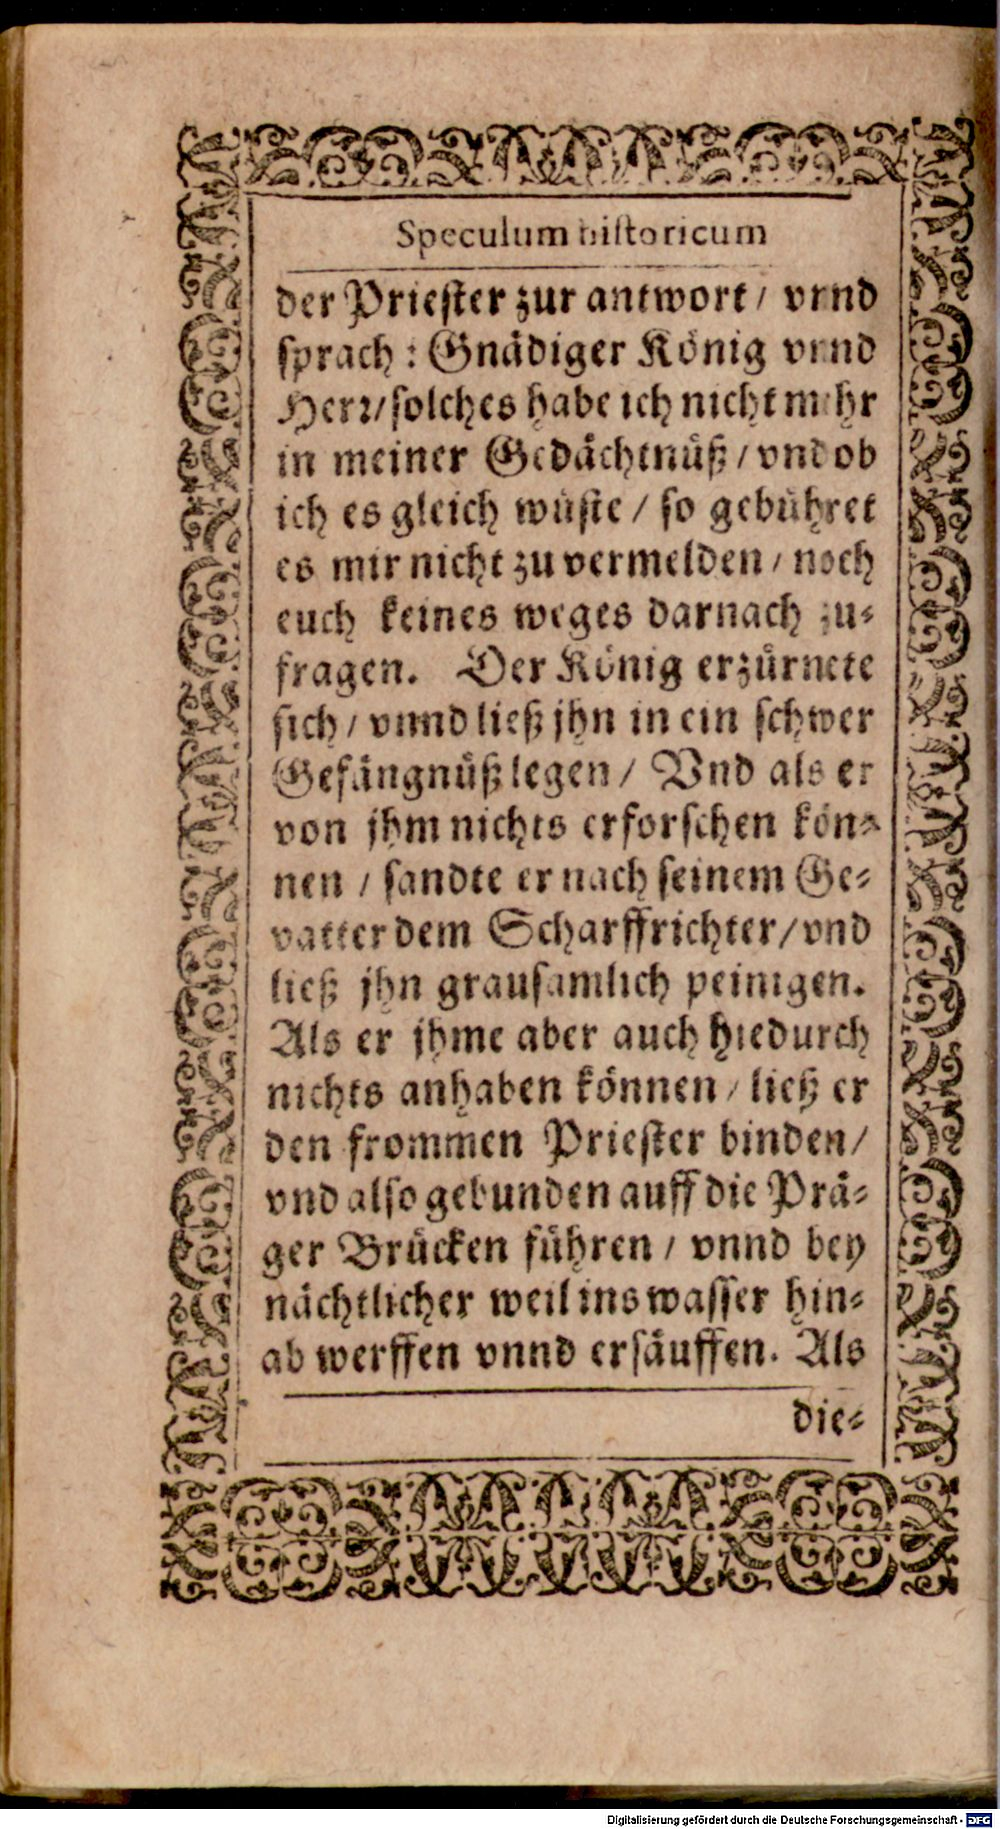 Speculum historicum
der Priester zur antwort / vnnd
sprach : Gnädiger König vnnd
Herr / solches habe ich nicht mehr
in meiner Gedächtnüß / vnd ob
ich es gleich wüste / so gebühret
es mir nicht zu vermelden / noch
euch keines weges darnach zu⸗
fragen. Der König erzürnete
sich / vnnd ließ jhn in ein schwer
Gefängnüß legen / Vnd als er
von jhm nichts erforschen kön⸗
nen / sandte er nach seinem Ge⸗
vatter dem Scharffrichter / vnd
ließ jhn grausamlich peinigen.
Als er jhme aber auch hiedurch
nichts anhaben können / ließ er
den frommen Priester binden /
vnd also gebunden auff die Prä⸗
ger Brücken führen / vnnd bey
nächtlicher weil ins wasser hin⸗
ab werffen vnnd ersäuffen. Als
die⸗
Digitalisierung gefördert durch die Deutsche Forschungsgemeinschaft - DFG